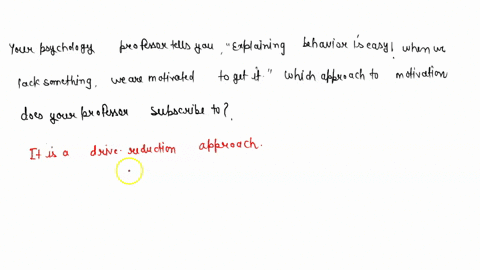 Your psychology professor tells you, "Explaining behavior is easy! when we
lack something, we are motivated to get it." which approach to motivation
does your professor subscribe to?
It is a drive-reduction approach.